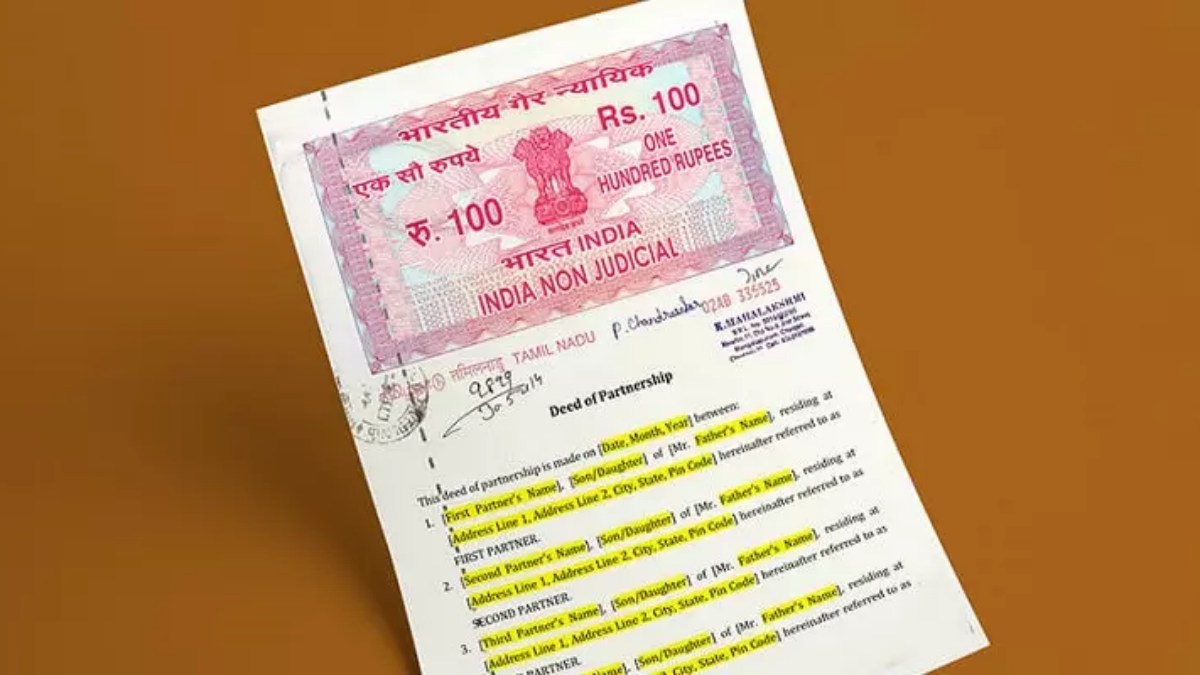 भारतीय गैर न्यायिक
एक सौ रुपये
Rs. 100
रु. 100
ONE
HUNDRED RUPEES
भारत INDIA
INDIA NON JUDICIAL
तमिलनाडु TAMIL NADU
P. Chandrasekar
02AB 335525
K.MAHALAKSHMI
Deed of Partnership
This deed of partnership is made on [Date, Month, Year] between:
1. [First Partner's Name], [Son/Daughter] of [Mr. Father's Name], residing at
[Address Line 1, Address Line 2, City, State, Pin Code] hereinafter referred to as
FIRST PARTNER.
2. [Second Partner's Name], [Son/Daughter] of [Mr. Father's Name], residing at
[Address Line 1, Address Line 2, City, State, Pin Code] hereinafter referred to as
SECOND PARTNER.
3. [Third Partner's Name], [Son/Daughter] of [Mr. Father's Name], residing at
[Address Line 1, Address Line 2, City, State, Pin Code] hereinafter referred to as
PARTNER.
Name], [Son/Daughter] of [Mr. Father's Name], residing at
City, State, Pin Code] hereinafter referred to as